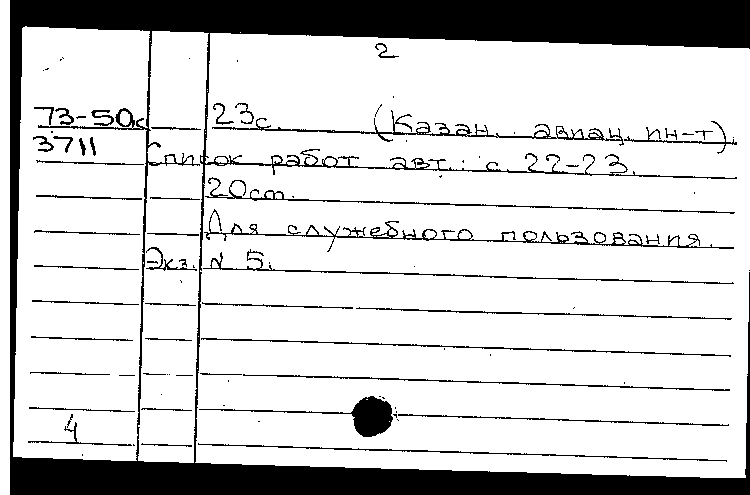 2
73-50к 23с. (Казан. авиац. ин-т).
3711 Список работ авт.: с. 22-23.
20 см.
Для служебного пользования.
Экз. № 5.
4